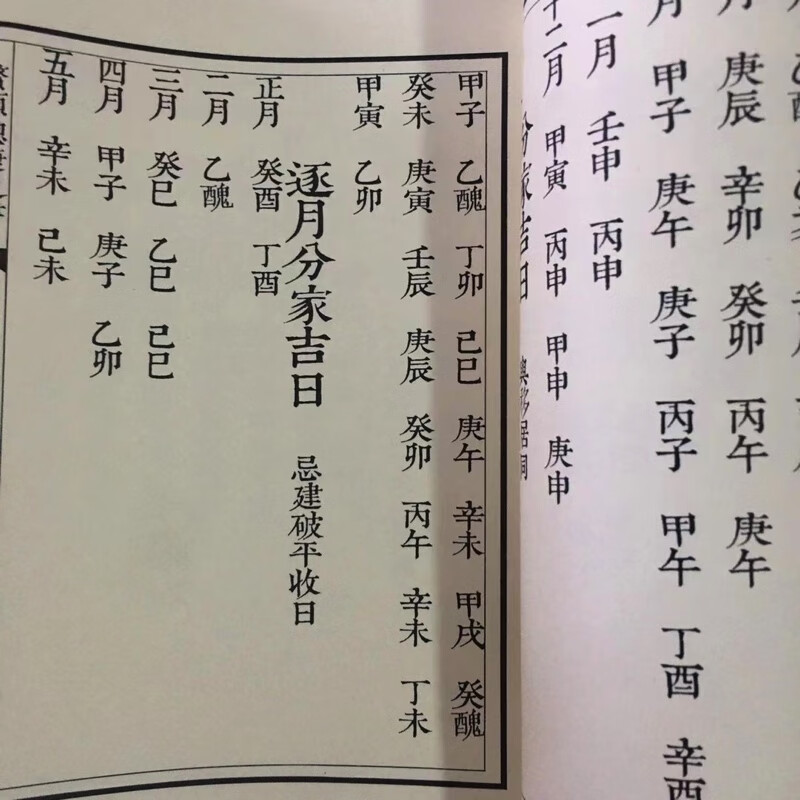 月 庚辰 辛卯 癸卯 丙午 庚午
月 甲子 庚午 庚子 丙子 甲午 丁酉 辛酉
一月 壬申 丙申
十二月 甲寅 丙申 甲申 庚申
分家吉日 與移居同
甲子 乙醜 丁卯 己巳 庚午 辛未 甲戌 癸醜
癸未 庚寅 壬辰 庚辰 癸卯 丙午 辛未 丁未
甲寅 乙卯
逐月分家吉日 忌建破平收日
正月 癸酉 丁酉
二月 乙醜
三月 癸巳 乙巳 己巳
四月 甲子 庚子 乙卯
五月 辛未 己未